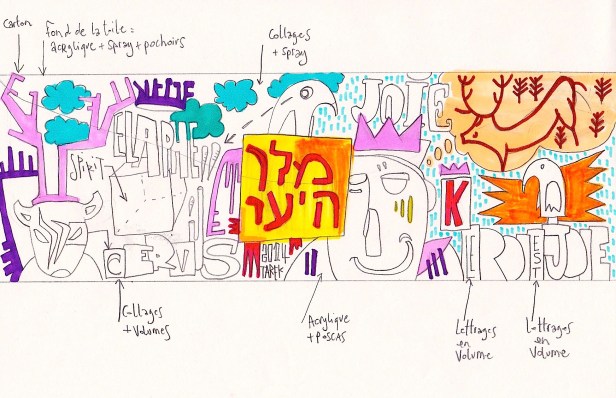 Carton
Fond de la toile :
acrylique + spray + pochoirs
Collages
+ spray
JOIE
SPIRIT
ELAPHEW
מלך
היער
K
CERVUS
2014
TAREK
EST
JOIE
Collages
+ Volumes
Acrylique
+ POSCAS
Lettrages
en
Volume
Lettrages
en
Volume